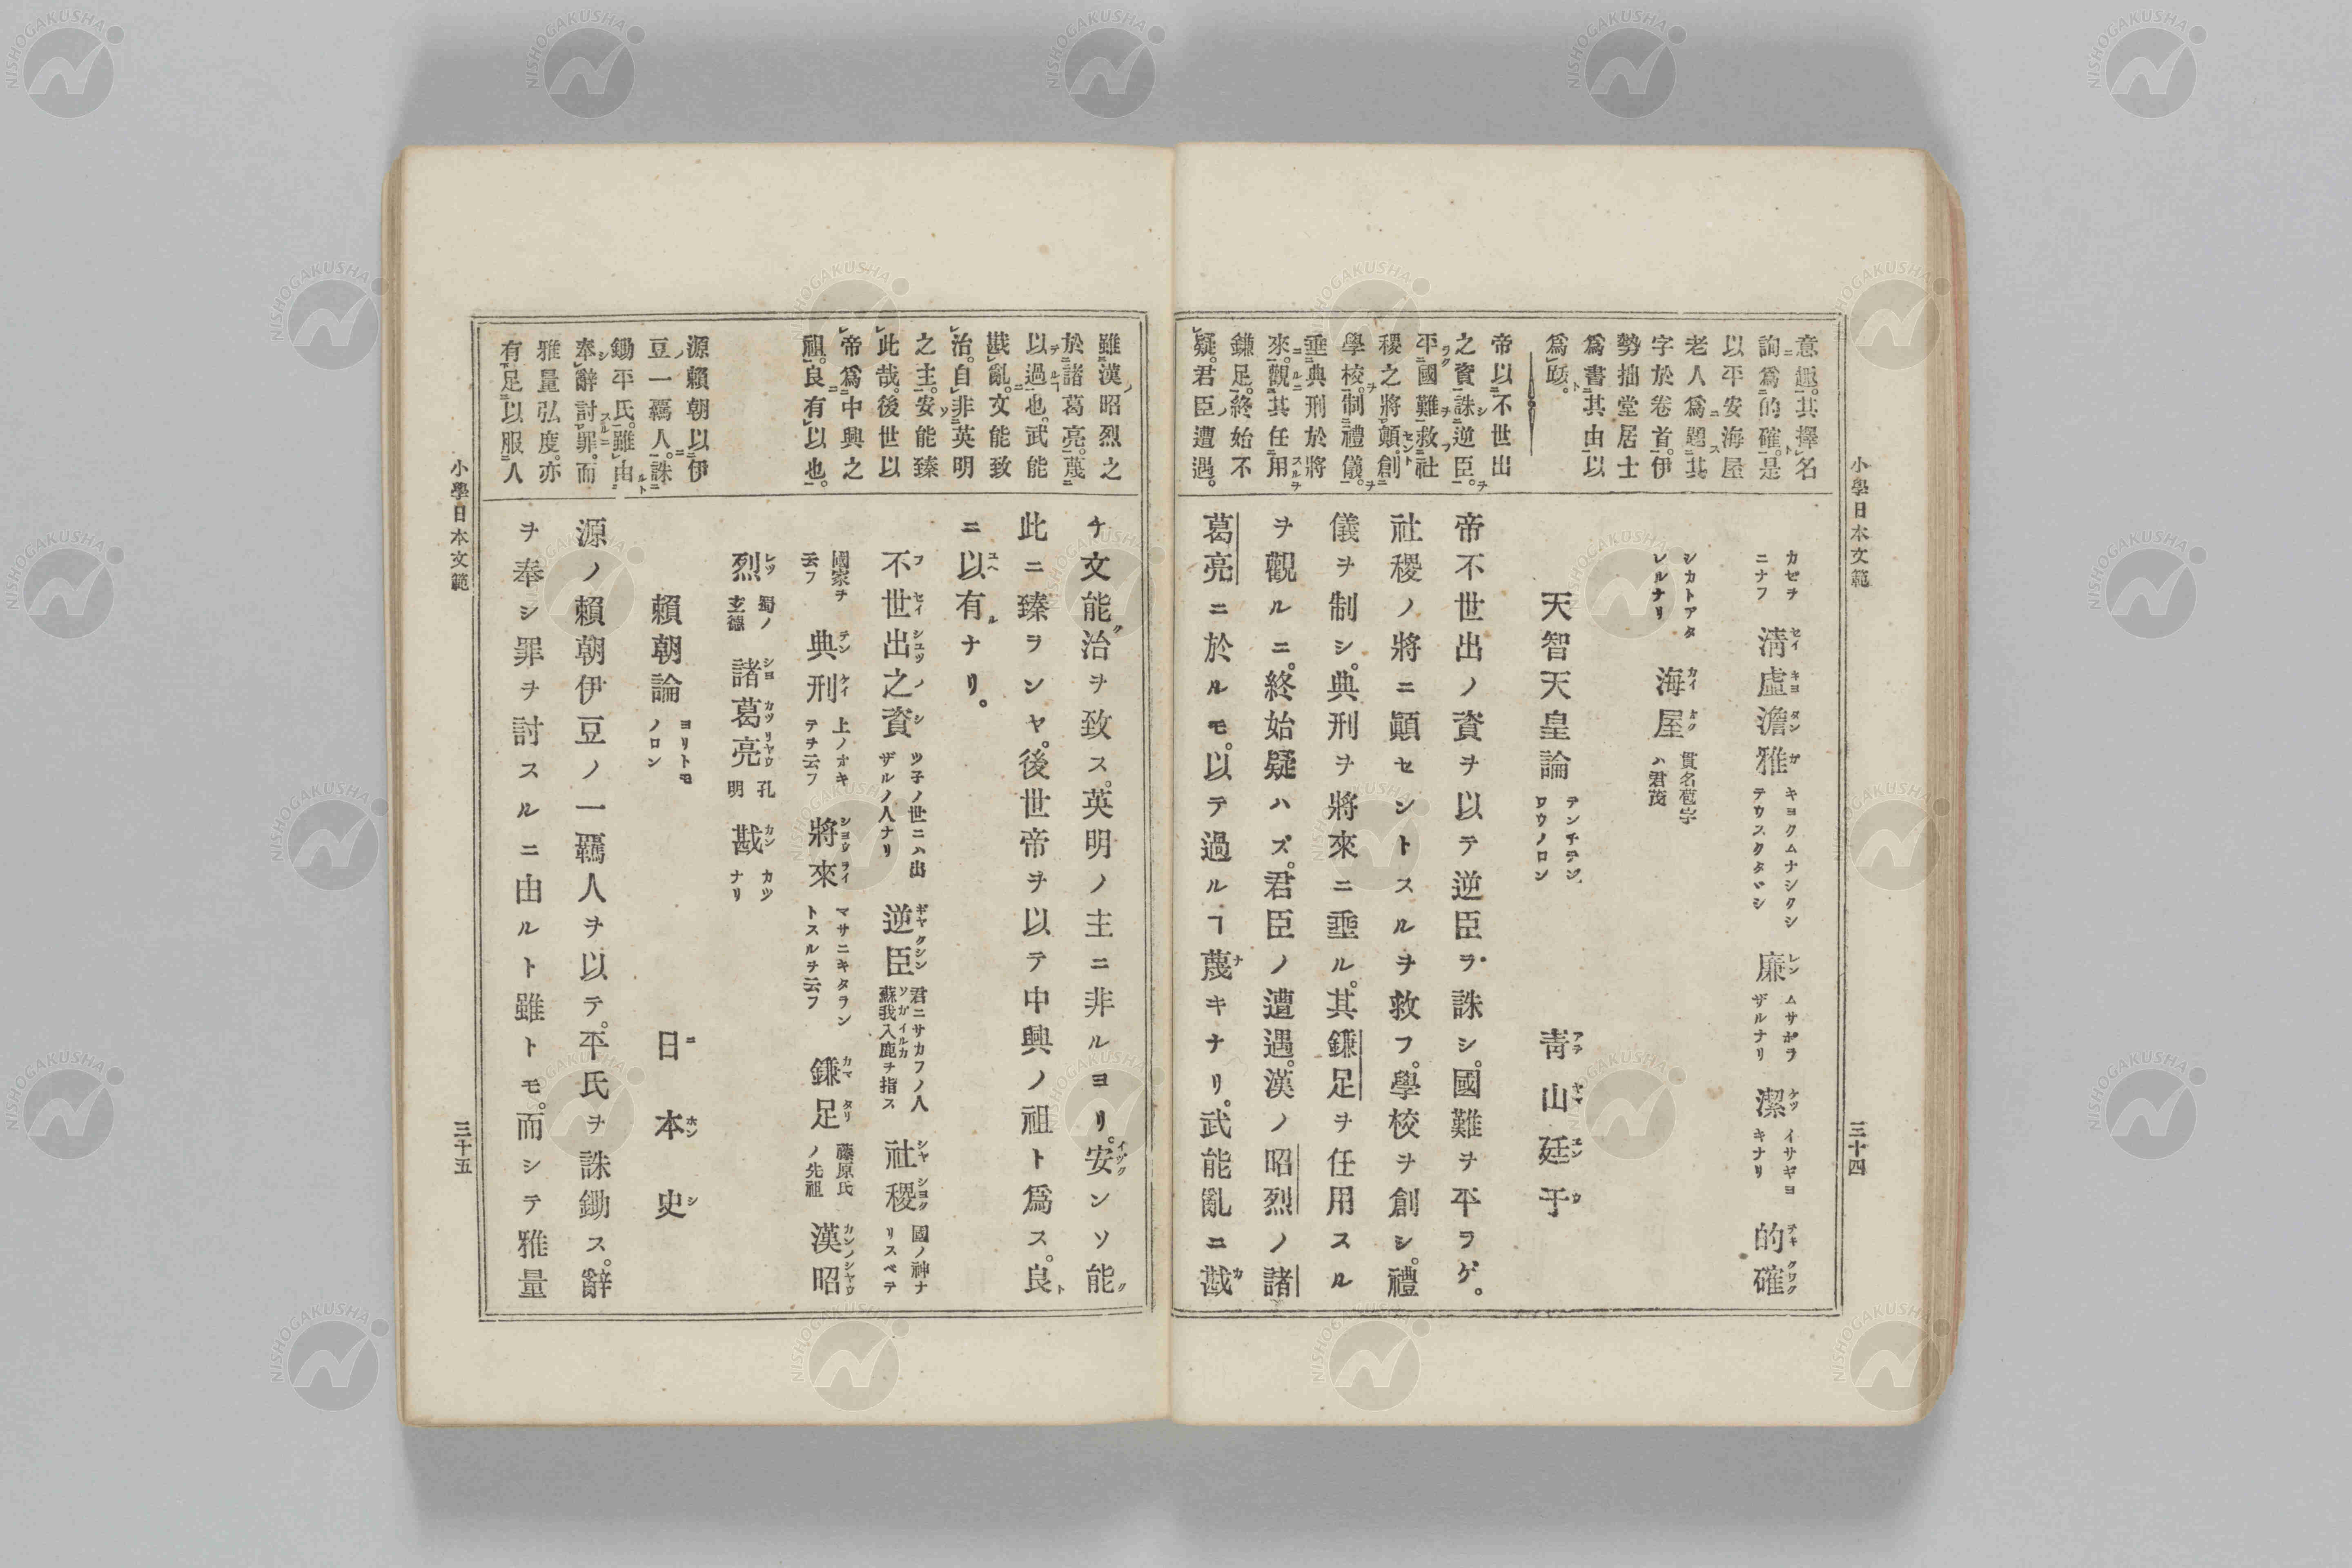 小學日本文範
三十四
意趣。其擇名
詢爲的確。是
以平安海屋
老人爲題其
字於卷首。伊
勢拙堂居士
爲書其由以
爲跋。
帝以不世出
之資誅逆臣。
平國難救社
稷之將顚。創
學校。制禮儀。
垂典刑於將
來。觀其任用
鎌足。終始不
疑。君臣遭遇。
カゼヲ
ニナフ
淸虛澹雅
キヨクムナシクシ
テウスクタヾシ
廉
ムサボラ
ザルナリ
潔
イサギヨ
キナリ
的確
シカトアタ
レルナリ
海屋
貫名苞字
ハ君茂
天智天皇論
テンチテン
ワウノロン
靑山延于
帝不世出ノ資ヲ以テ逆臣ヲ誅シ。國難ヲ平ラゲ。
社稷ノ將ニ顚セントスルヲ救フ。學校ヲ創シ。禮
儀ヲ制シ。典刑ヲ將來ニ垂ル。其鎌足ヲ任用スル
ヲ觀ルニ。終始疑ハズ。君臣ノ遭遇。漢ノ昭烈ノ諸
葛亮ニ於ルモ。以テ過ルヿ蔑キナリ。武能亂ニ戡
雖漢昭烈之
於諸葛亮。蔑
以過也。武能
戡亂。文能致
治。自非英明
之主。安能臻
此哉。後世以
帝爲中興之
祖。良有以也。
源賴朝以伊
豆一羈人。誅
鋤平氏。雖由
奉辭討罪。而
雅量弘度。亦
有足以服人
チ文能治ヲ致ス。英明ノ主ニ非ルヨリ。安ンソ能
此ニ臻ヲンヤ。後世帝ヲ以テ中興ノ祖ト爲ス。良
ニ以有ナリ。
不世出之資
ツ子ノ世ニハ出
ザルノ人ナリ
逆臣
君ニサカフノ人
蘇我入鹿ヲ指ス
社稷
國ノ神ナ
リスベテ
國家ヲ
云フ
典刑
上ノオキ
テヲ云フ
將來
マサニキタラン
トスルヲ云フ
鎌足
藤原氏
ノ先祖
漢昭
烈
蜀ノ
玄德
諸葛亮
孔
明
戡
カツ
ナリ
賴朝論
ヨリトモ
ノロン
日本史
源ノ賴朝伊豆ノ一羈人ヲ以テ。平氏ヲ誅鋤ス。辭
ヲ奉シ罪ヲ討スルニ由ルト雖トモ。而シテ雅量
小學日本文範
三十五